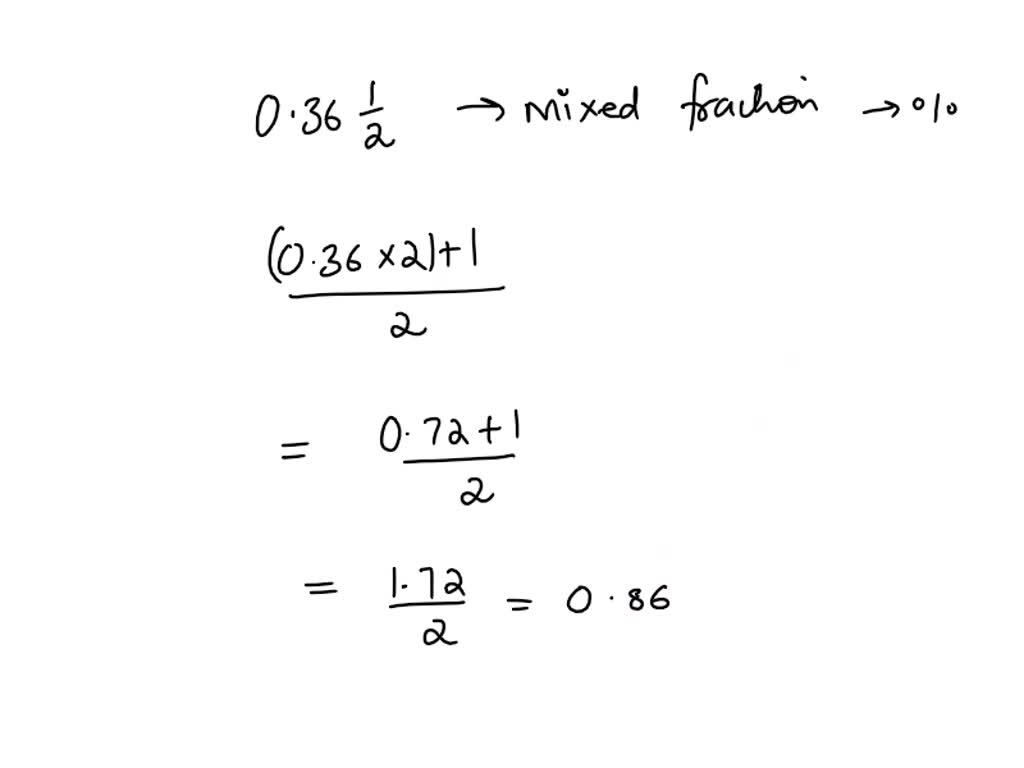 0.36 1/2 → mixed fraction → %
(0.36 × 2) + 1 / 2
= 0.72 + 1 / 2
= 1.72 / 2 = 0.86